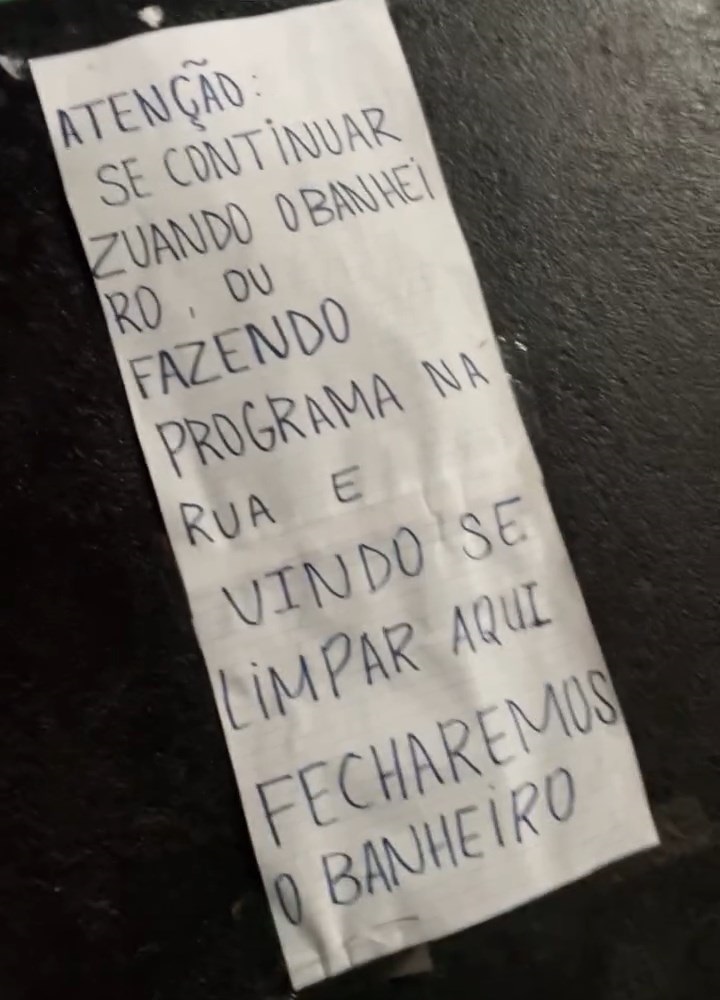 ATENÇÃO:
SE CONTINUAR
ZUANDO O BANHEI
RO, OU
FAZENDO
PROGRAMA NA
RUA E
VINDO SE
LIMPAR AQUI
FECHAREMOS
O BANHEIRO